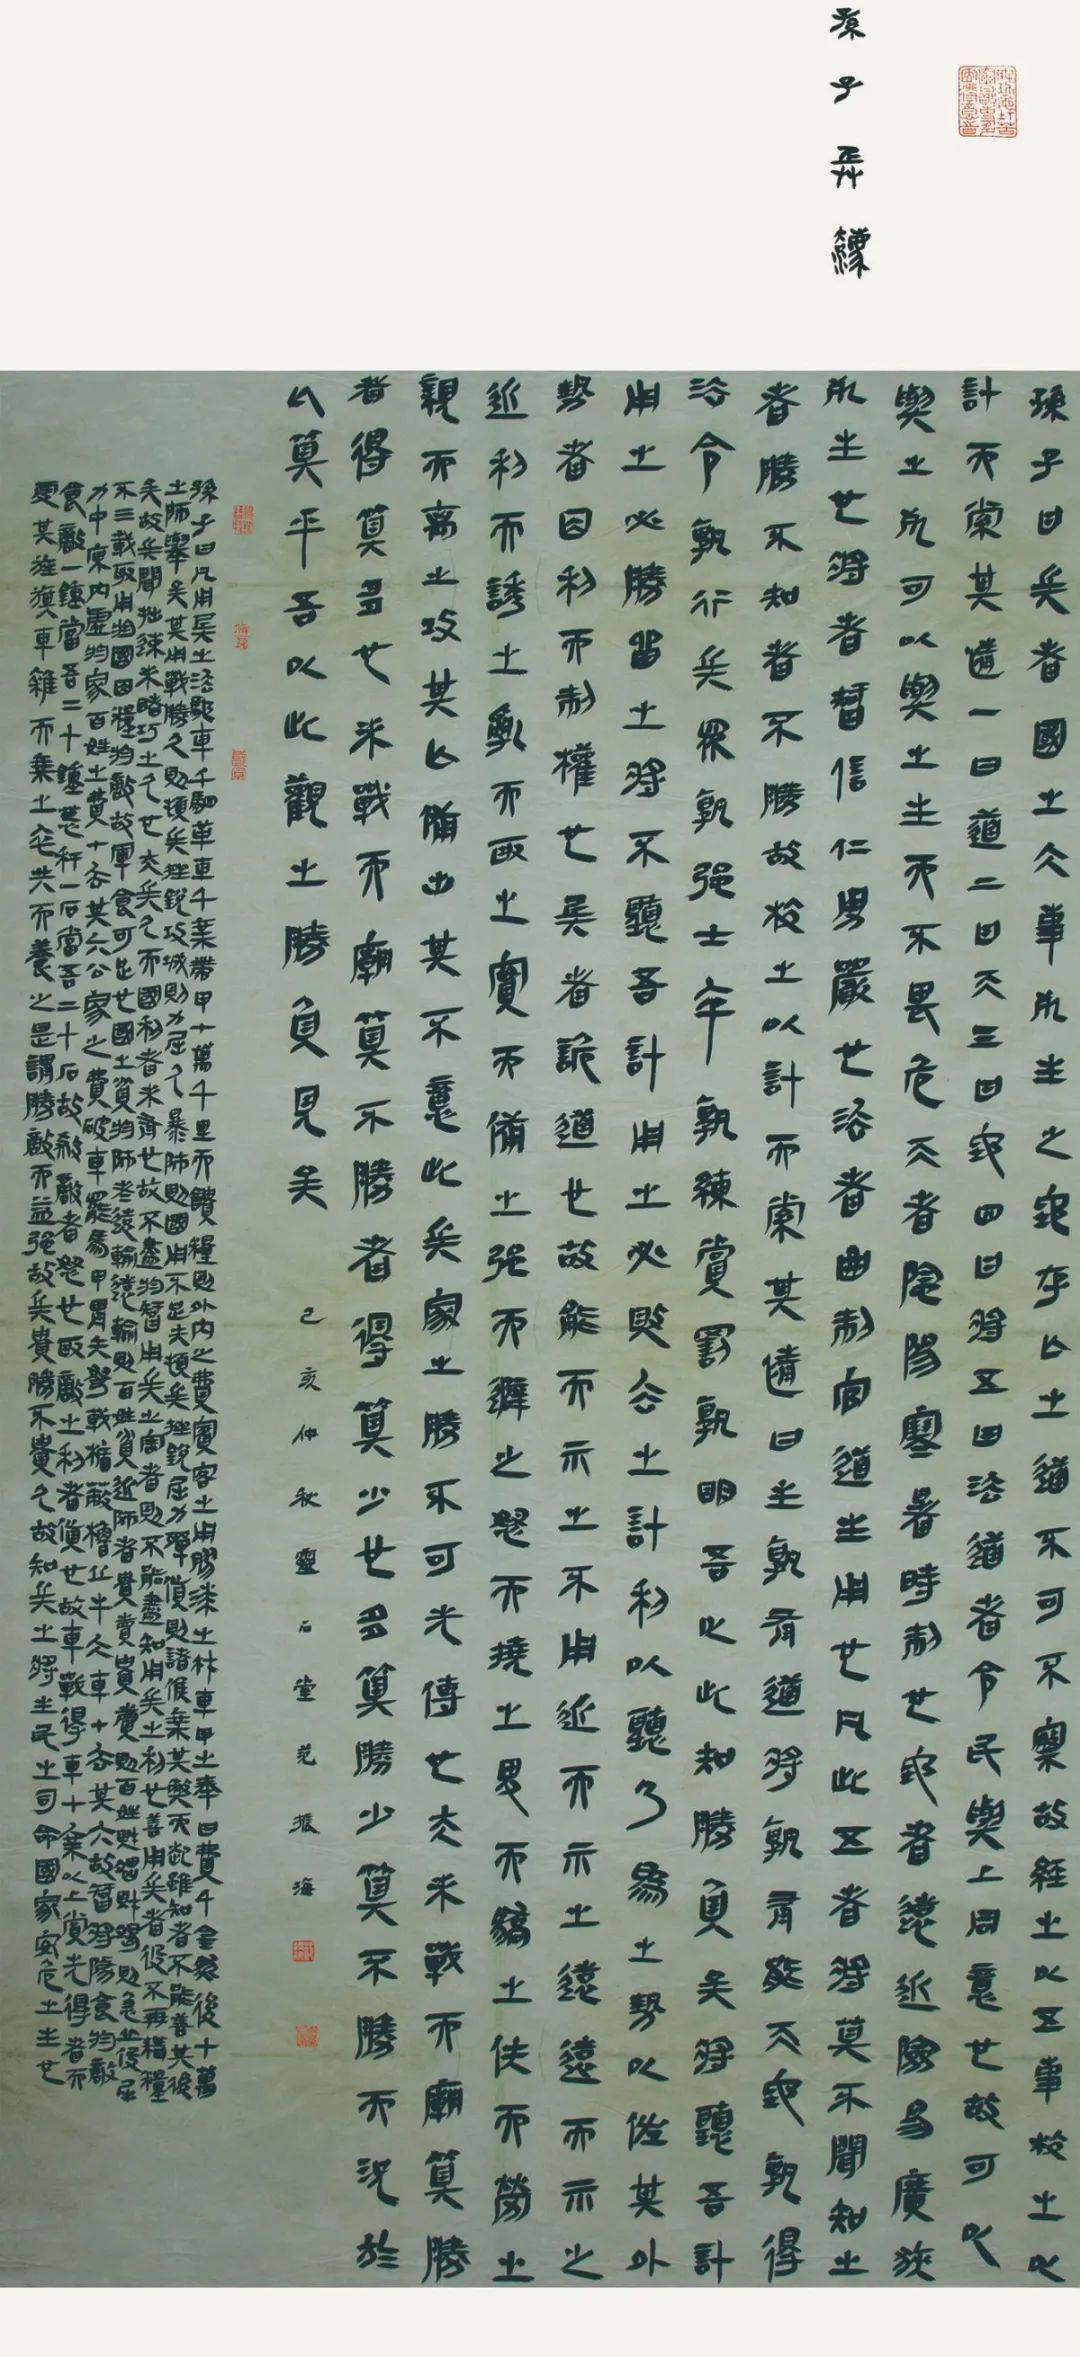 孫子
孫子曰兵者國之大事死生之地存亡之道不可不察故經之以五事校之以
計而索其情一曰道二曰天三曰地四曰將五曰法道者令民與上同意也故可以
與之死可以與之生而不畏危天者陰陽寒暑時制也地者遠近險易廣狹
死生也將者智信仁勇嚴也法者曲制官道主用也凡此五者將莫不聞知之
者勝不知者不勝故校之以計而索其情曰主孰有道將孰有能天地孰得
法令孰行兵眾孰強士卒孰練賞罰孰明吾以此知勝負矣將聽吾計
用之必勝留之將不聽吾計用之必敗去之計利以聽乃為之勢以佐其外
勢者因利而制權也兵者詭道也故能而示之不用近而示之遠遠而示之
近利而誘之亂而取之實而備之強而避之怒而撓之卑而驕之佚而勞之
親而離之攻其亡備出其不意此兵家之勝不可先傳也夫未戰而廟算勝
者得算多也未戰而廟算不勝者得算少也多算勝少算不勝而況於
亡算乎吾以此觀之勝負見矣 己亥仲秋靈石堂范振海
孫子曰凡用兵之法馳車千駟革車千乘帶甲十萬千里而饋糧則外內之費賓客之用膠漆之材車甲之奉日費千金然後十萬
之師舉矣其用戰勝久則頓兵挫銳攻城則力屈久暴師則國用不足夫頓兵挫銳屈力殫貨則諸侯乘其弊而起雖知者不能善其後
矣故兵聞拙速未睹巧之久也夫兵久而國利者未有也故不盡於智用兵之害者則不能盡知用兵之利也善用兵者役不再籍糧
不三載取用於國因糧於敵故軍食可足也國之貧於師者遠輸遠輸則百姓貧近師者貴賣貴賣則百姓財竭財竭則急丘役屈
力中原內虛於家百姓之費十去其六公家之費破車罷馬甲冑矢弩戟楯蔽櫓丘牛大車十去其六故智將務食於敵
食敵一鍾當吾二十鍾萁秆一石當吾二十石故殺敵者怒也取敵之利者貨也故車戰得車十乘以上賞先得者而
更其旌旗車雜而乘之卒共而養之是謂勝敵而益強故兵貴勝不貴久故知兵之將生民之司命國家安危之主也